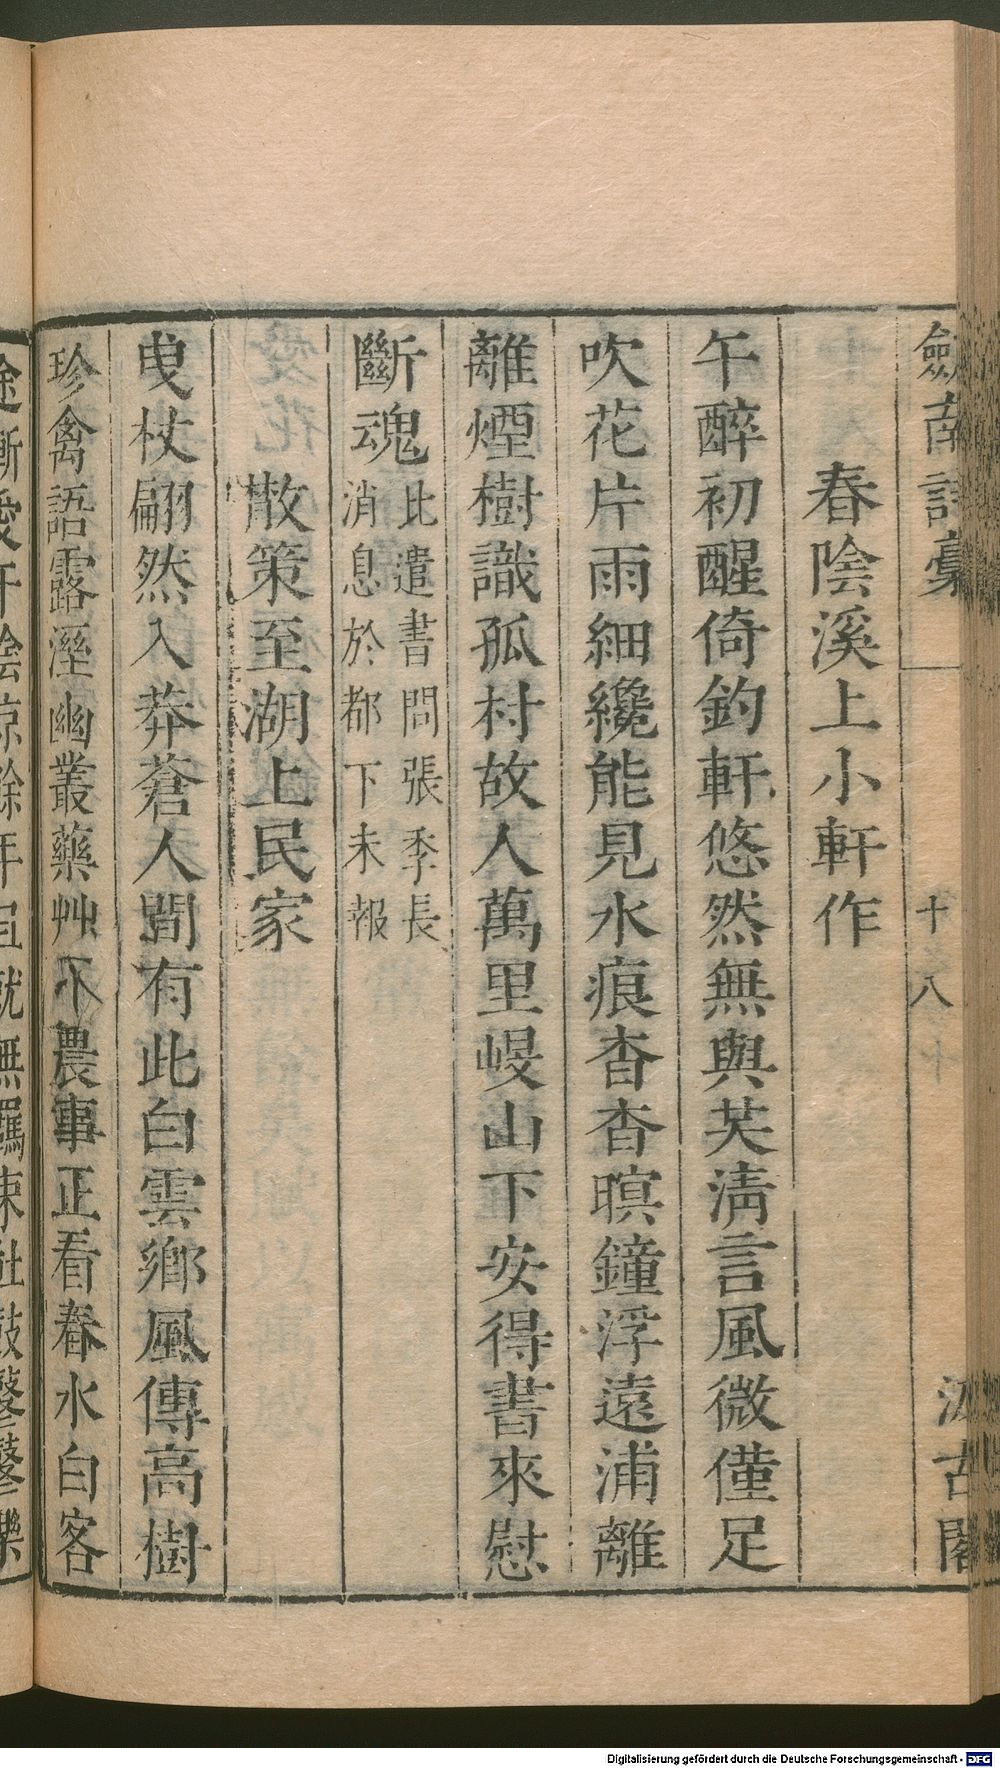 劍南詩藁
十八
汲古閣
春陰溪上小軒作
午醉初醒倚釣軒悠然無與共淸言風微僅足
吹花片雨細纔能見水痕杳杳暝鐘浮遠浦離
離煙樹識孤村故人萬里峻山下安得書來慰
斷魂比遣書問張季長
消息於都下未報
散策至湖上民家
曳杖翩然入莽蒼人間有此白雲鄉風傳高樹
珍禽語露溼幽叢藥艸香農事正看春水白客
途漸愛午陰涼餘年且就無羈束社鼓鼕鼕樂
Digitalisierung gefördert durch die Deutsche Forschungsgemeinschaft - DFG